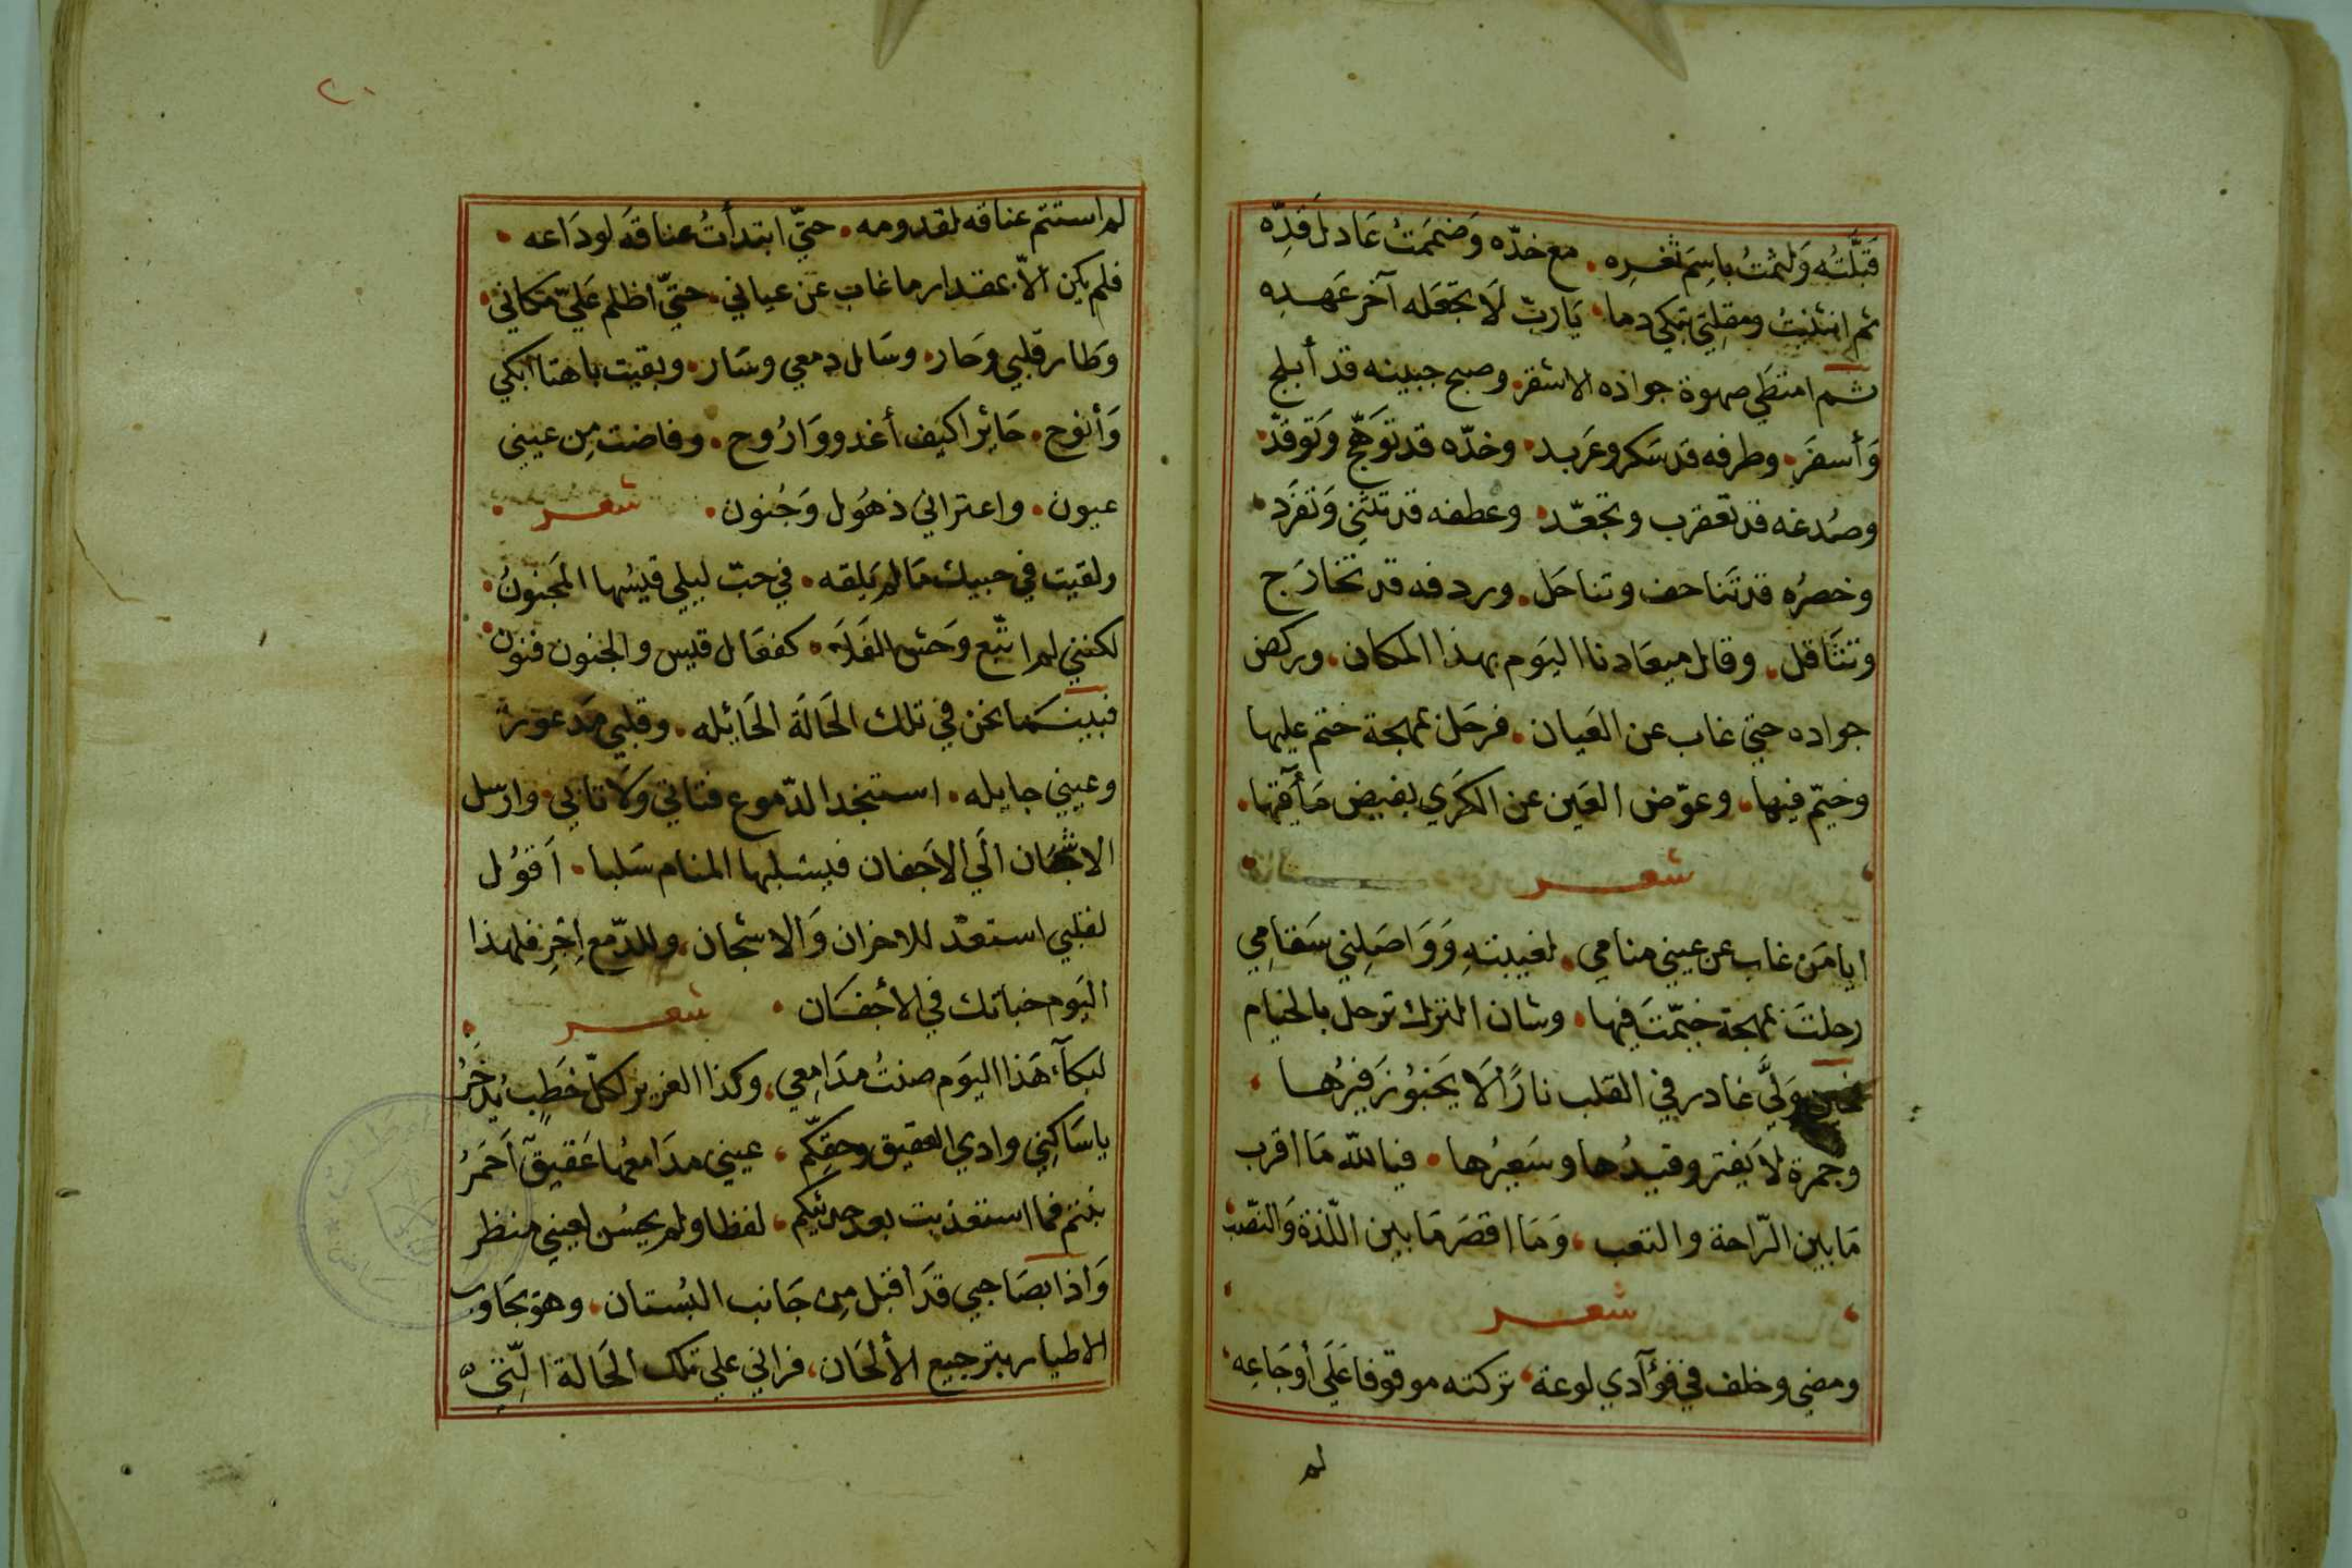 قَبَّلْتُه وَلثمتُ باسِمَ ثغـرِه • مع خدّه وَضممَتُ عَادلَ قدِّه
ثم انثنيتُ ومقلتي تبكي دما • يَاربّ لَا تجعَله آخر عَهـده
ثـم امتطي صهوة جواده الاشقر • وصبح جبينه قد أبلج
وَأسفَر • وطرفه قد سَكر وعَربد • وخدّه قد توَهّج وَتوقدّ •
وصُدغه قد تعقرب وتجعّد • وعطفه قد تثني وَتفرَد •
وخصرُه قد تَناحف وتناحَل • وردفه قد تخارَج
وتثَاقل • وقال ميعَادنا اليَوم بهذا المكان • وركض
جواده حتي غاب عن العَيان • فرحَل بمهجة ختم عليها
وخيّم فيها • وعوّض العَين عن الكرَي بفيض مَأقيها •
شعـــر
ايا مَن غاب عن عيني منامي • لغيبتهِ وَوَاصَلِني سَقامِي
رحلتَ بمهجة خيّمتَ فيها • وشان الترك ترحل بالخيام
وَلّي غادر في القلب نارًا لَا يَخبوُ زَفيرُهــا •
وجمرة لَا يَفتر وقيدُها وسَعيرُها • فيالله مَا اقرب
مَا بين الرّاحة والتعب • وَمَا اقصَر مَا بين اللّذة وَالنصَب
شعـــر
ومضي وخلف في فؤآدي لوعة • تركته موقوفا عَلَي أوجَاعِه •
لم
٢٠
لم استتم عناقه لقدومه • حتّي ابتدأتُ عناقَه لودَاعه •
فلم يكن الّا بمقدار ما غاب عن عياني • حتيّ اظلم عَليّ مَكاني •
وطار قلبي وحَار • وسَال دمعي وسَار • وبقيت باهتا ابكي
وَأنوح • حَائرا كيَف أغدو وَارُوح • وفاضت مِن عيني
عيون • واعتراني ذهُول وَجُنون • شعــر •
ولقيت في حبيك مَا لم يَلقه • في حبّ ليلي قيسُها المَجنونُ •
لكنني لم اتّبع وَحش الفَلَا • كفعَال قيس والجنون فنون •
فبينـمَا نحن في تلك الحَالَة الحَائله • وقلبي مَدعورَة
وعيني جايله • استنجد الدّموع فتاتي وَلَا تاتي • وارسل
الاشجَان الَي الاَجفان فيسَلبها المنام سَلبا • اَقوُل
لقلبي استعدْ للاحزان وَالاشجان • وللدّمع اِخِر فلهذا
اليَوم خباتك في الأجفـَان • شعـــر •
لبكآء هَذا اليَوم صنتُ مدَامِعي • وكذا العزيز لكلّ خَطبٍ يُدخَرُ
يا سَاكِني وادي العقيق وحقِّكم • عيني مدَامعُها عَقيق آحَمرُ
بنتم فما استعذبت بعد حديثكم • لفظا ولم يحسُن لعيني منظر
وَاذا بصَاحبي قدَ اقبَل مِن جَانب البُستان • وهوَ يجَاوب
الاطيار بترجيع الألحَان • فراني علي تلك الحَالة الّتي